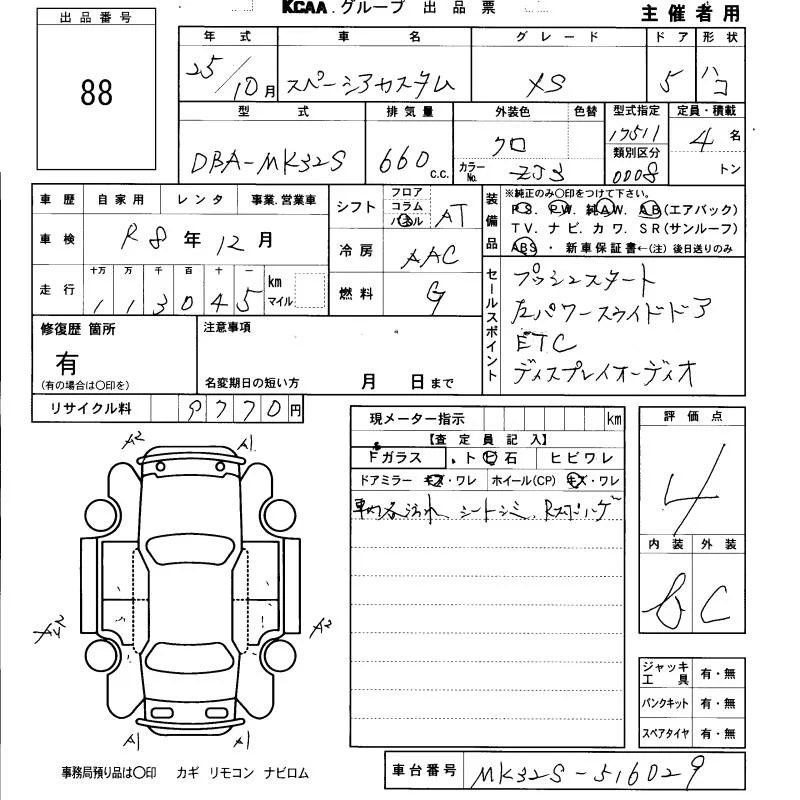 KCAA.グループ 出品票
主催者用
出品番号
88
年式 車名 グレード ドア 形状
25/10月 スペーシアカスタム XS 5 ハコ
型式 排気量 外装色 色替 型式指定 定員・積載
DBA-MK32S 660 c.c. クロ 17511 4名
カラーNo. ZJ3 類別区分 0008 トン
車歴 自家用 レンタ 事業.営業車
シフト フロア コラム パネル AT
装備品 ※純正のみ○印をつけて下さい。
PS. PW. 純AW. AB(エアバック)
TV. ナビ. カワ. SR(サンルーフ)
ABS・新車保証書←(注)後日送りのみ
車検 R8年12月
冷房 AAC
走行 十万 万 千 百 十 一 km マイル
113045
燃料 G
セールスポイント
プッシュスタート
左パワースライドドア
ETC
ディスプレイオーディオ
修復歴 箇所
有
(有の場合は○印を)
注意事項
名変期日の短い方 月 日まで
リサイクル料 9770円
現メーター指示 km
【査定員記入】
Fガラス . ト ビ 石 ヒビワレ
ドアミラー キズ・ワレ ホイール(CP) キズ・ワレ
車内各汚れ、シートシミ、
評価点
4
内装 外装
B C
A2 A1
A2
A1 A1
ジャッキ工具 有・無
パンクキット 有・無
スペアタイヤ 有・無
事務局預り品は○印 カギ リモコン ナビロム
車台番号 MK32S-516029